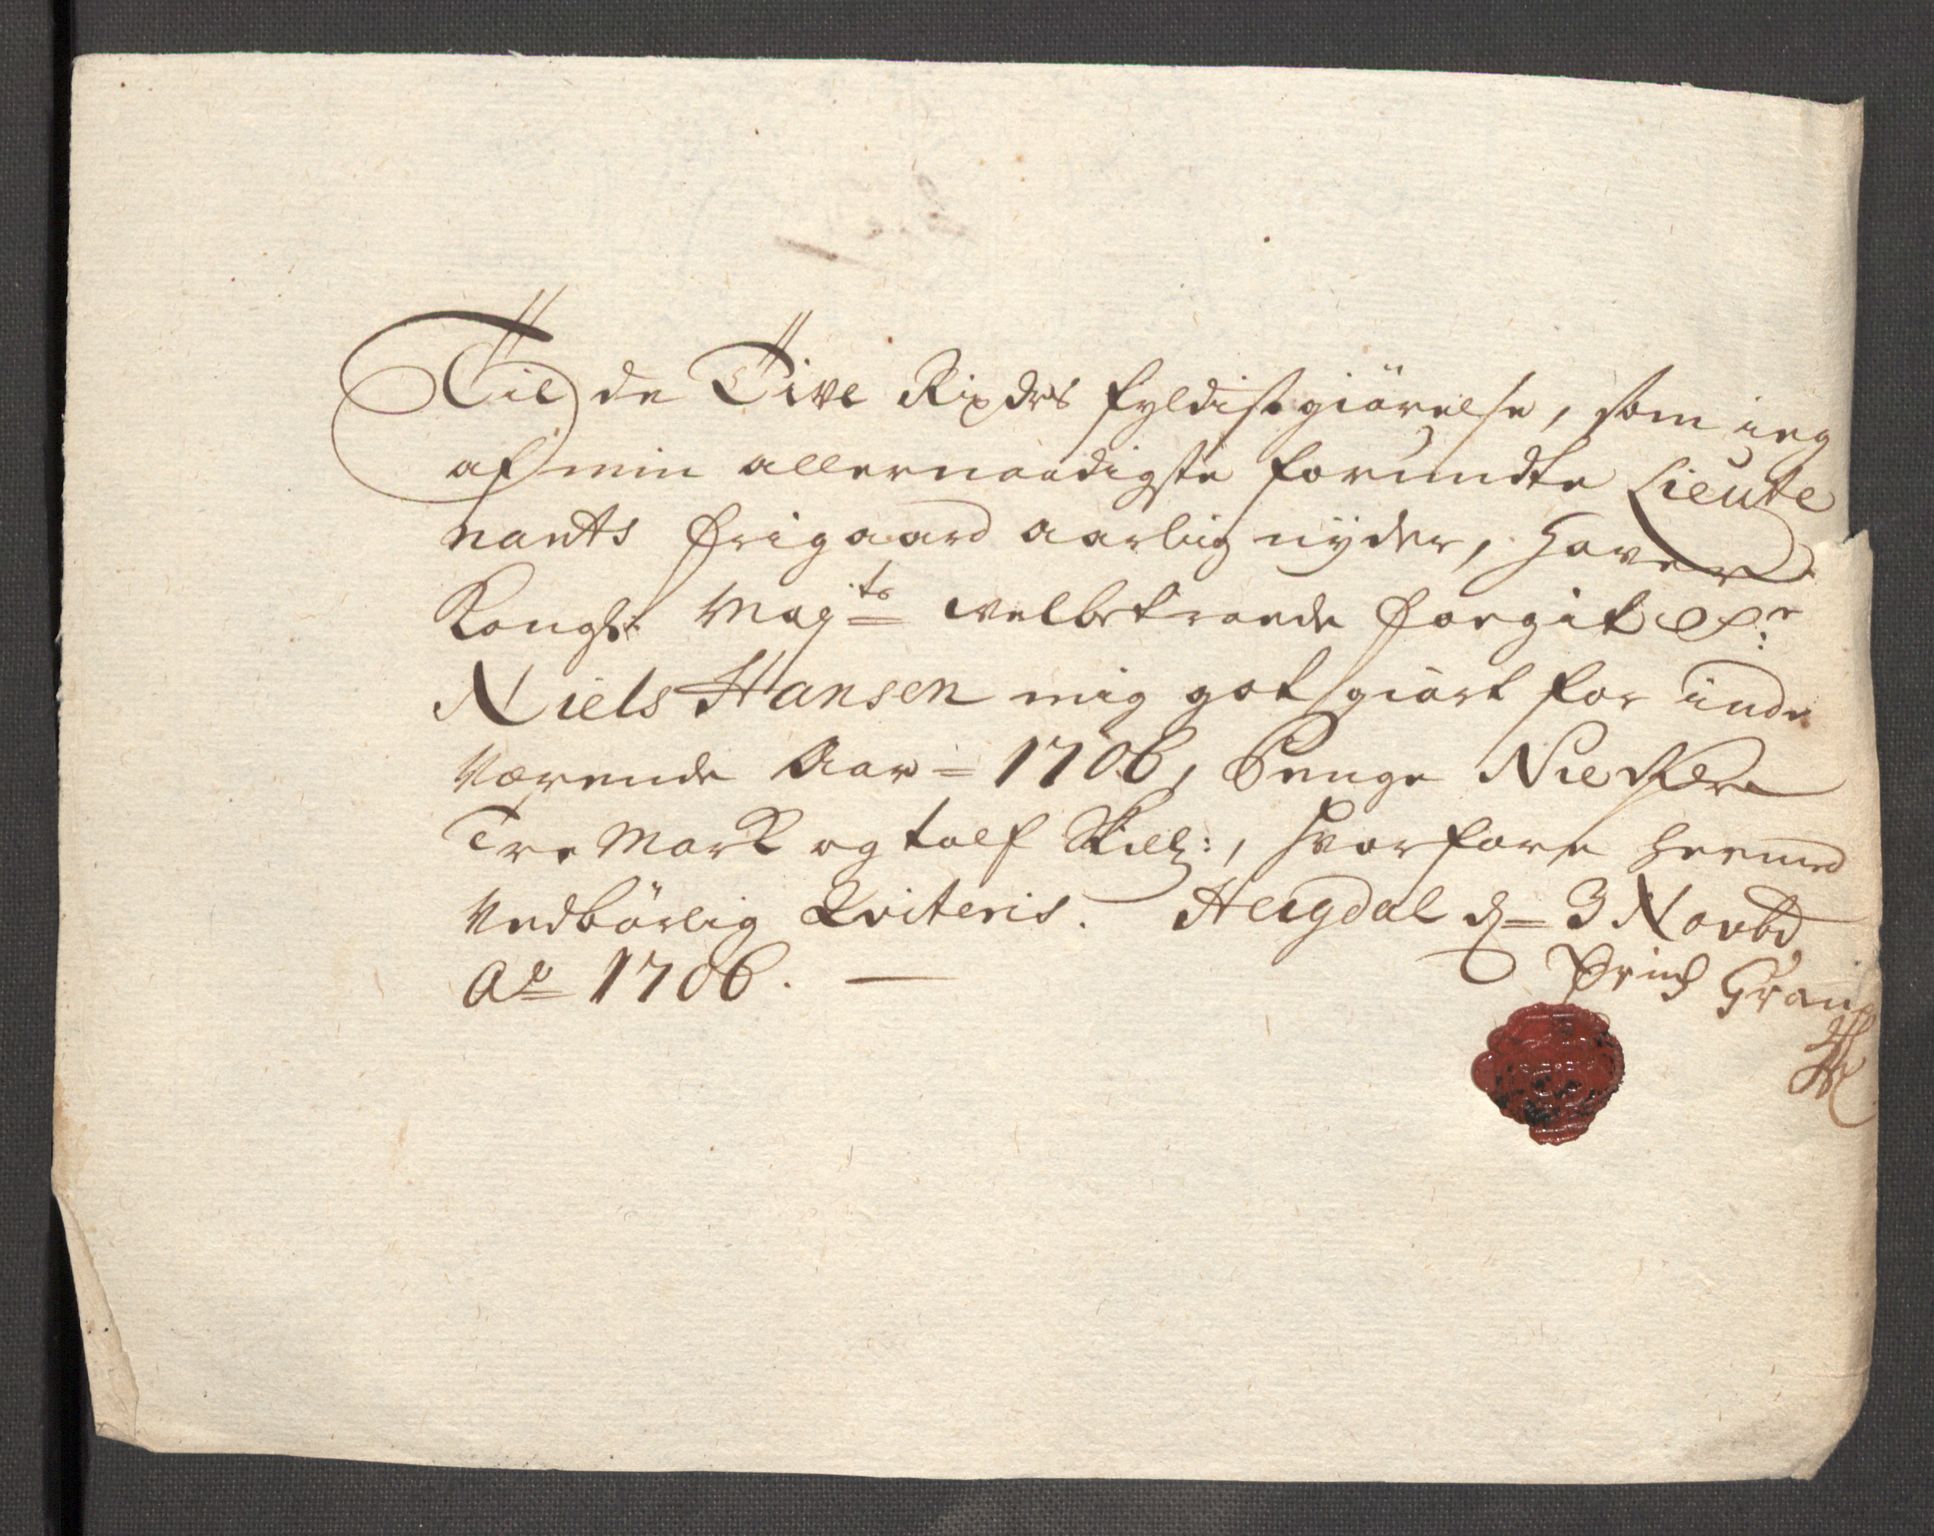 Til de Tive Rixdrs fyldistgiörelse, som ieg
af min allernaadigste forundte Lieute
nants Friqaard aarlig nyder, haver
Kongl. Mayts welbetroede Foegit Sr.
Niels Hansen mig got giört for inde
værende Aar = 1706, Penge Nie Rdr
Tre Mark og tolf Skill:, hvorfore hermed
Vedbörlig Qviteris. d. 3 Novbr
Ao 1706.